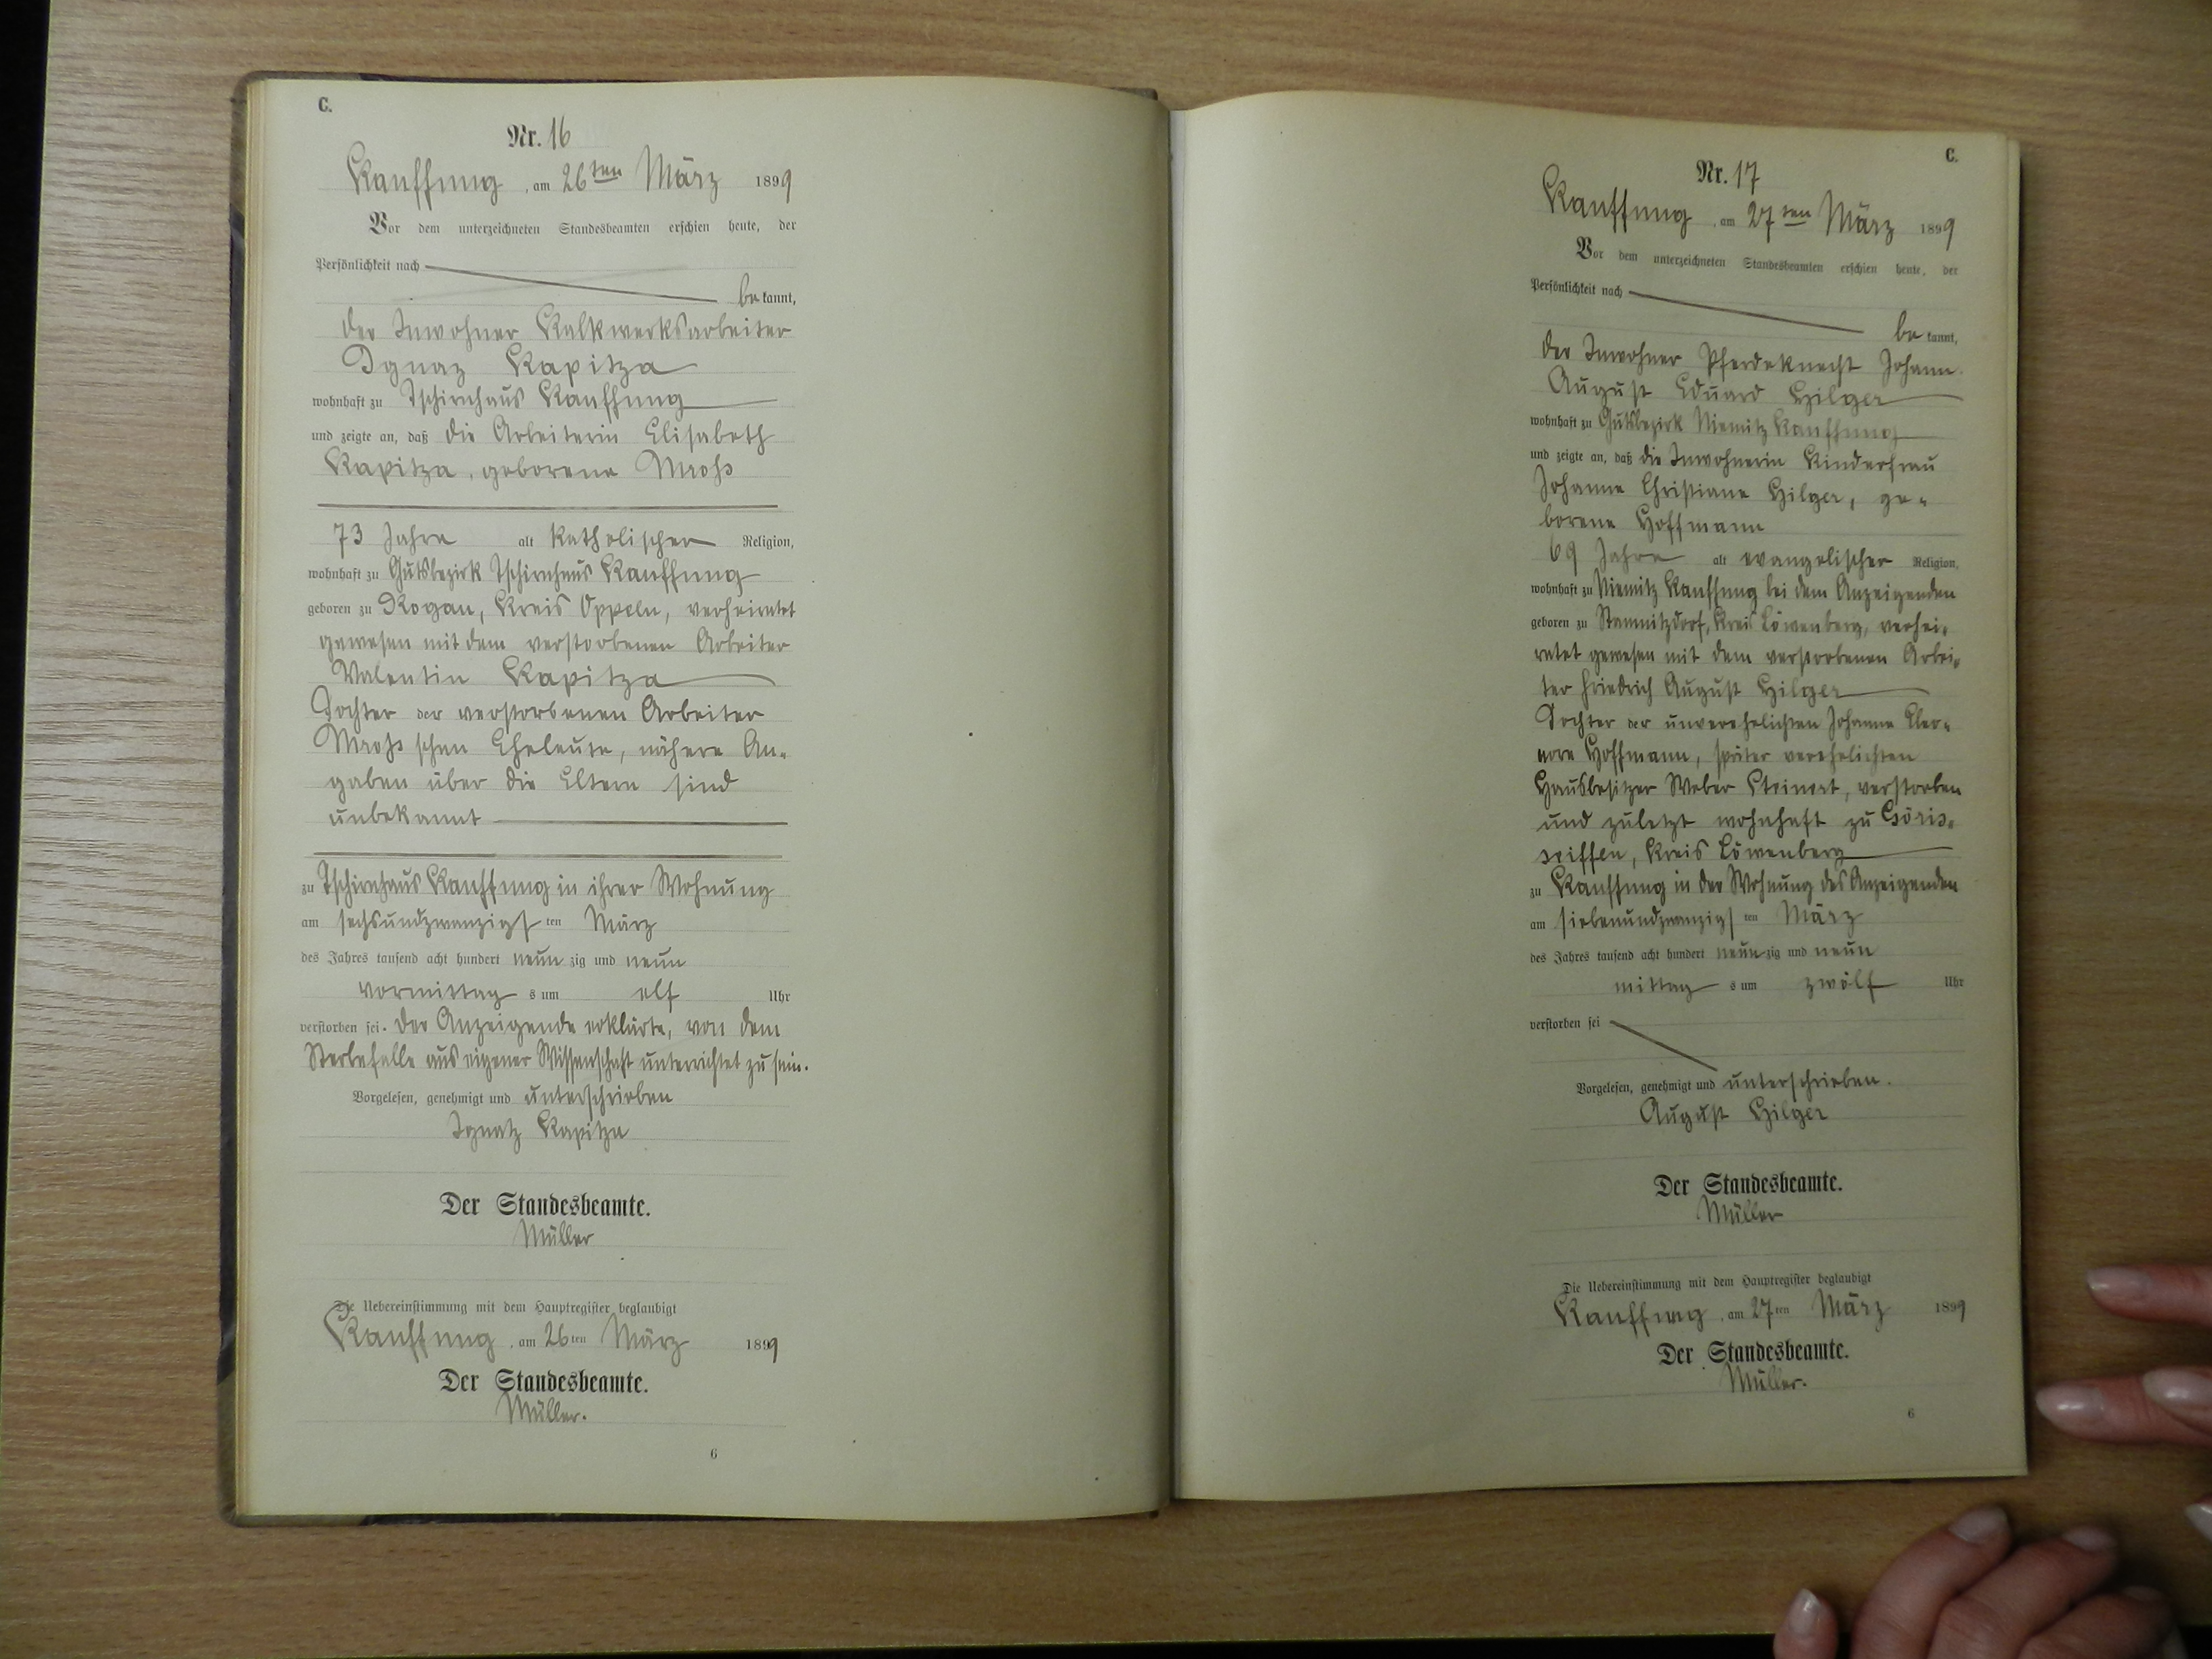 C.
Nr. 16
Kauffung, am 26ten März 1899
Vor dem unterzeichneten Standesbeamten erschien heute, der
Persönlichkeit nach
bekannt,
der Inwohner Kalkwerksarbeiter
Ignaz Kapitza
wohnhaft zu Tschirnhaus Kauffung
und zeigte an, daß die Arbeiterin Elisabeth
Kapitza, geborene Mroß
73 Jahre alt katholischer Religion,
wohnhaft zu Gutsbezirk Tschirnhaus Kauffung
geboren zu Rogau, Kreis Oppeln, verheiratet
gewesen mit dem verstorbenen Arbeiter
Valentin Kapitza
Tochter der verstorbenen Arbeiter
Mroß'schen Eheleute, nähere An-
gaben über die Eltern sind
unbekannt
zu Tschirnhaus Kauffung in ihrer Wohnung
am sechsundzwanzigsten März
des Jahres tausend acht hundert neunzig und neun
vormittags um elf Uhr
verstorben sei. Der Anzeigende erklärte, von dem
Sterbefalle aus eigener Wissenschaft unterrichtet zu sein.
Vorgelesen, genehmigt und unterschrieben
Ignatz Kapitza
Der Standesbeamte.
Müller
Die Uebereinstimmung mit dem Hauptregister beglaubigt
Kauffung, am 26ten März 1899
Der Standesbeamte.
Müller.
6
C.
Nr. 17
Kauffung, am 27ten März 1899
Vor dem unterzeichneten Standesbeamten erschien heute, der
Persönlichkeit nach
bekannt,
der Inwohner Pferdeknecht Johann
August Eduard Hilger
wohnhaft zu Gutsbezirk Niemitz Kauffung
und zeigte an, daß die Inwohnerin Kinderfrau
Johanne Christiane Hilger, ge-
borene Hoffmann
69 Jahre alt evangelischer Religion,
wohnhaft zu Niemitz Kauffung bei dem Anzeigenden
geboren zu Kreis Löwenberg, verhei-
ratet gewesen mit dem verstorbenen Arbei-
ter Friedrich August Hilger
Tochter der unverehelichten Johanne Eleo-
nore Hoffmann, später verehelichten
Hausbesitzer Weber Steinert, verstorben
und zuletzt wohnhaft zu Göris-
seiffen, Kreis Löwenberg
zu Kauffung in der Wohnung des Anzeigenden
am siebenundzwanzigsten März
des Jahres tausend acht hundert neunzig und neun
mittags um zwölf Uhr
verstorben sei
Vorgelesen, genehmigt und unterschrieben.
August Hilger
Der Standesbeamte.
Müller
Die Uebereinstimmung mit dem Hauptregister beglaubigt
Kauffung, am 27ten März 1899
Der Standesbeamte.
Müller.
6